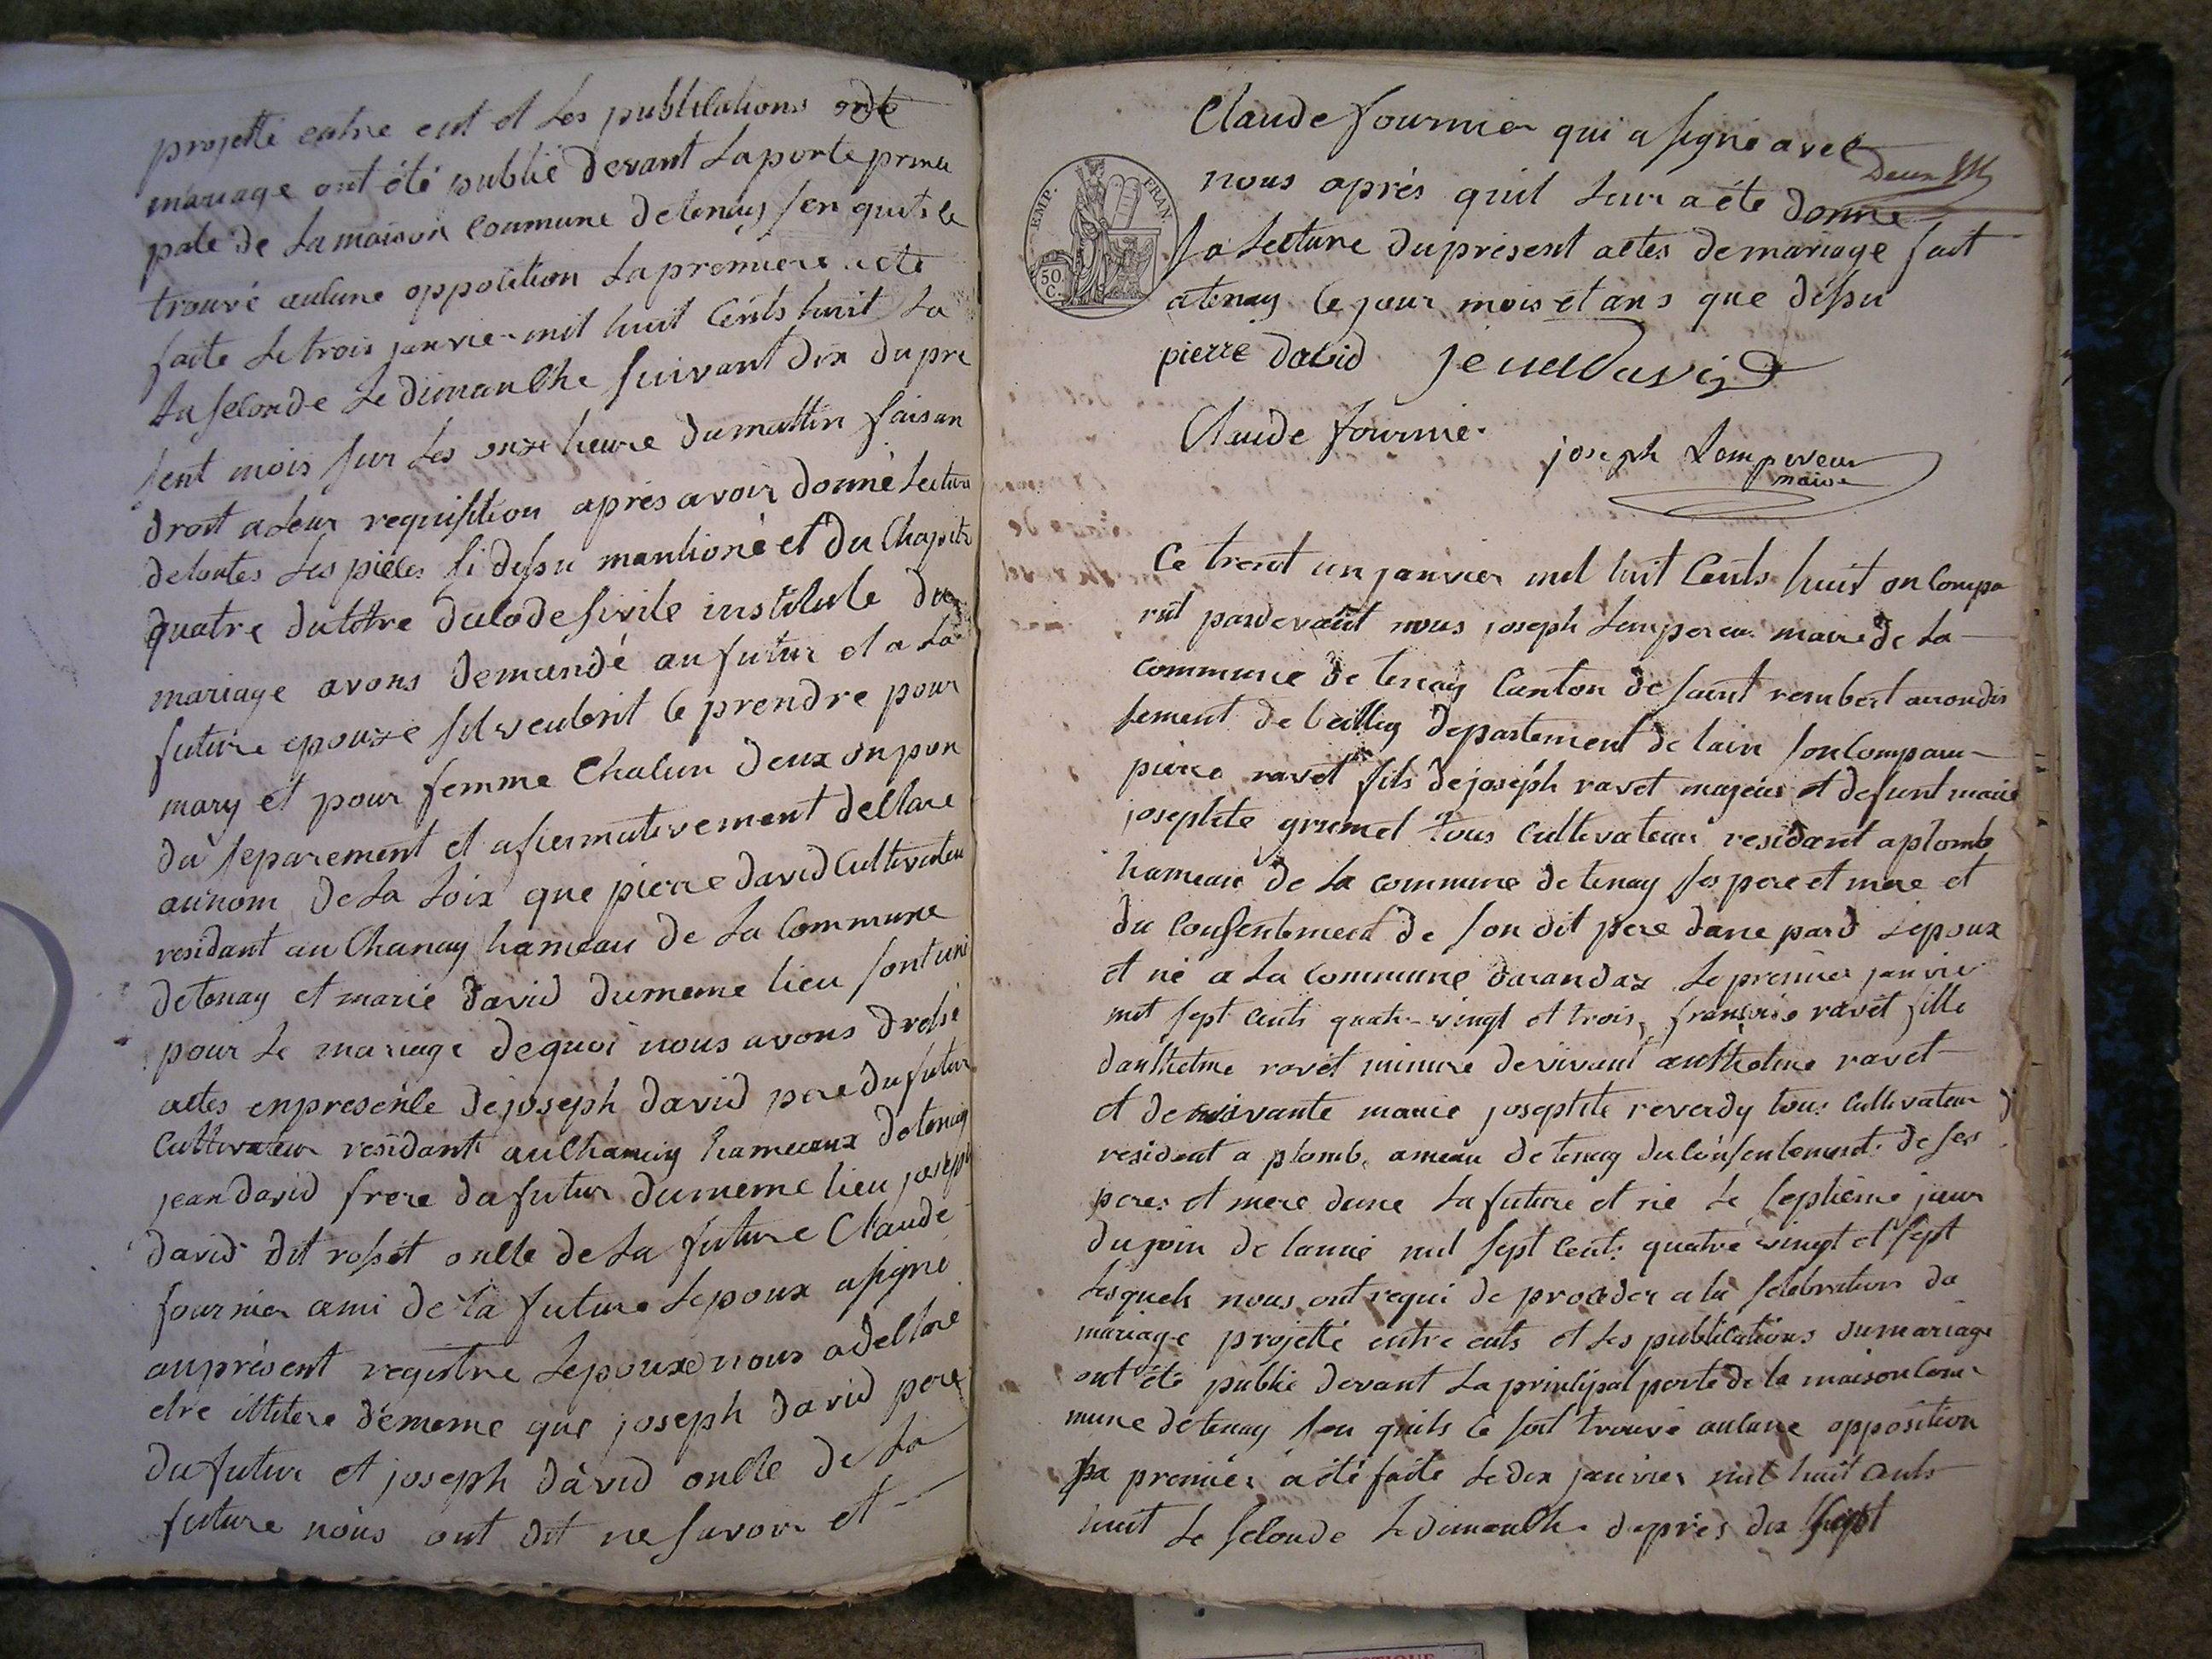 projetté entre eut et les publications de
mariage ont été publié devant la porte princi
pale de la maison Commune de tenay sen quils le
trouvé aucune oppotition la premiere a été
faite le trois janvier mil huit Cents huit la
la seconde le dimanche suivant dix du pre
sent mois sur les onze heure du mattin faisan
droit a leur requisition après avoir donné lecture
de toutes les pieces si desu mantioné et du Chapitre
quatre du titre du code sivile institule du
mariage avons demandé au futur et a la
future epouze sil veulent le prendre pour
mary et pour femme Chacun deux on pon
du separement et afirmativement declare
au nom de la loix que pierre david Cultivateur
residant au Chanay hameau de la Commune
de tenay et marie david du meme lieu sont uni
pour le mariage de quoi nous avons dressé
actes en presence de joseph david pere du futur
Cultivateur residant au Chanay hameaux de tenay
jean david frere du futur du meme lieu joseph
david dit rosset oncle de la future Claude
fournier ami de la future lepoux a signé
au présent registre lepouxe nous a declare
etre illitere de meme que joseph david pere
du futur et joseph david oncle de la
future nous ont dit ne savoir et
Claude fournier qui a signé avec
nous après quil leur a été donne
la lecture du présent actes de mariage fait
a tenay le jour mois et ans que desu
EMP. FRAN
50 C.
pierre david jean David
Claude fournier
joseph Lempereur
maire
Ce trent un janvier mil huit Cents huit on Compa
rut pardevant nous joseph Lempereur maire de la
commune de tenay Canton de saint rembert arondis
sement de belley departement de lain son Comparu
pierre ravet fils de joseph ravet majeur et defunt marie
josephte grumet tous Cultivateur residant a plomb
hameau de la commune de tenay ses pere et mere et
du Consentement de son dit pere dune pard lepoux
et né a la commune darandaz le premier janvier
mil sept Cents quatre-vingt et trois, françoise ravet fille
danthelme ravet minure de vivant anthelme ravet
et de vivante marie josephte reverdy tous Cultivateur
resident a plomb, ameau de tenay du Consentement de ses
peres et mere dune la future et né le septième jour
du juin de lanné mil sept Cents quatre vingt et sept
lesquels nous ont requi de proceder a la selebration du
mariage projetté entre euts et les publications du mariage
ont été publié devant la principal porte de la maison Com
mune de tenay sen quils le soit trouvé aucune opposition
la premier a été faite le dix janvier mil huit Cents
huit le seconde le dimanche daprès dix sept